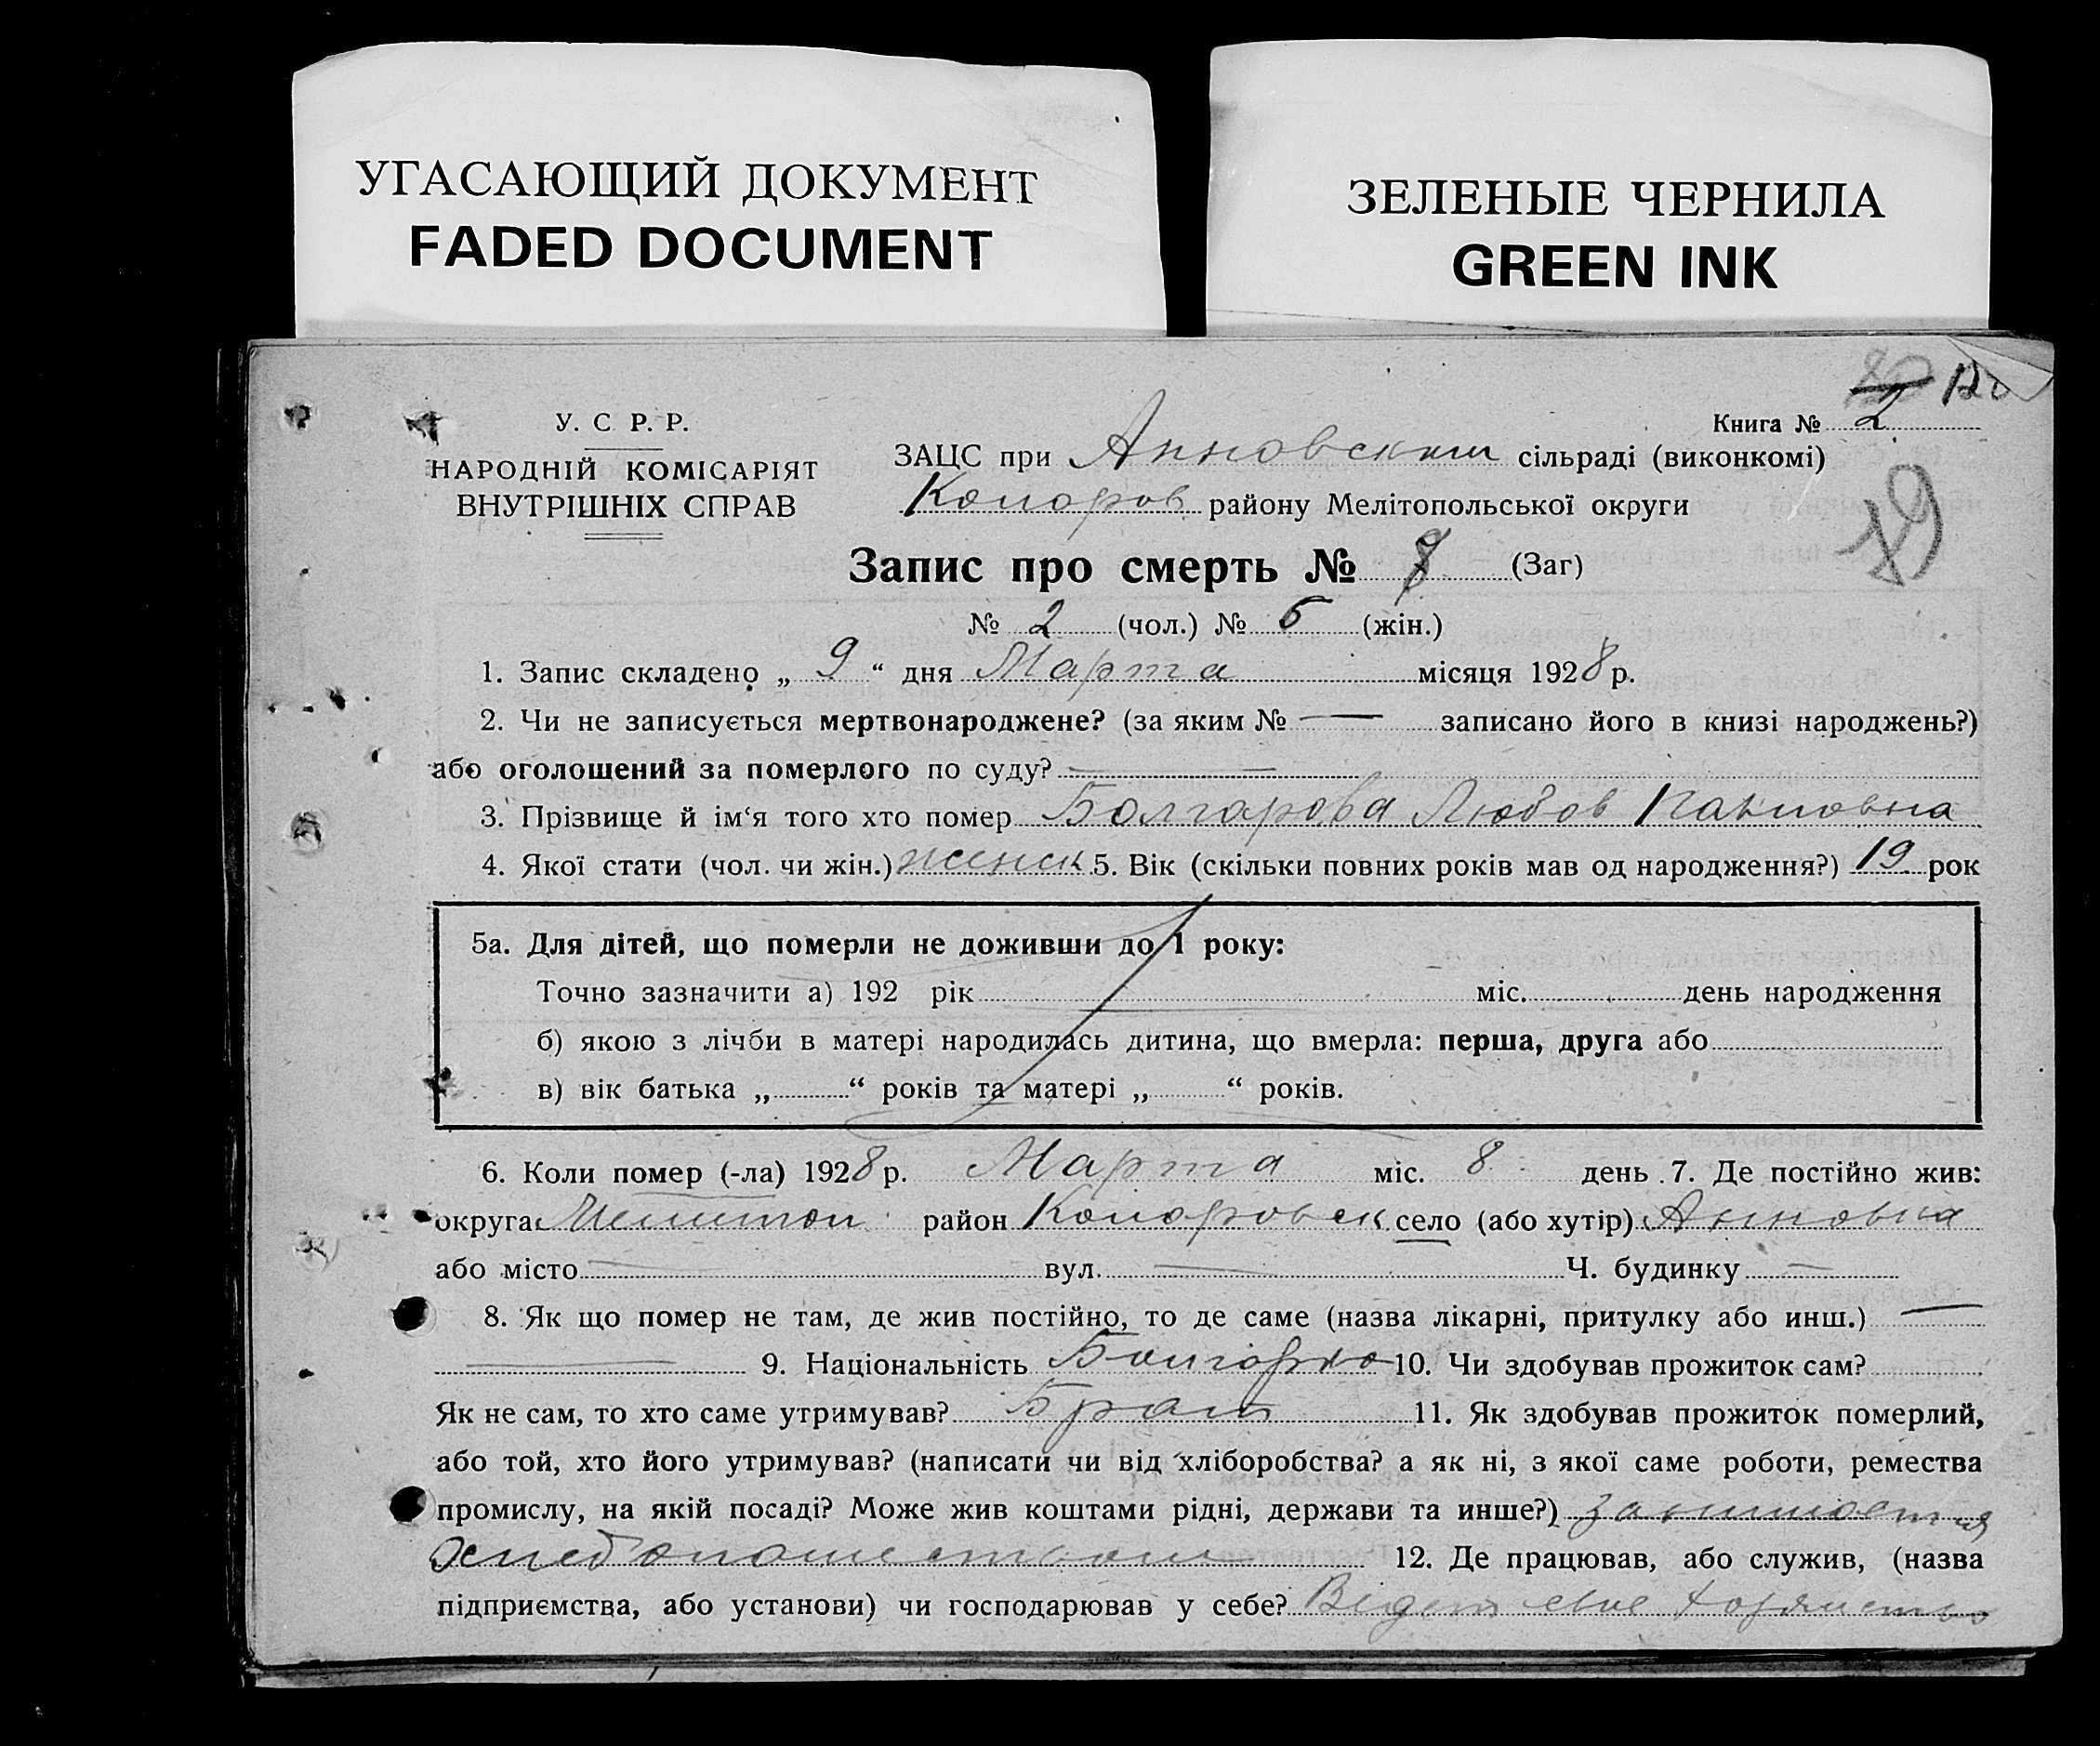 УГАСАЮЩИЙ ДОКУМЕНТ
FADED DOCUMENT
ЗЕЛЕНЫЕ ЧЕРНИЛА
GREEN INK
У. С. Р. Р.
НАРОДНІЙ КОМІСАРІЯТ
ВНУТРІШНІХ СПРАВ
120
Книга № 2
ЗАЦС при Анновском сільраді (виконкомі)
Коларов району Мелітопольської округи
19
Запис про смерть № 7 (Заг)
№ 2 (чол.) № 5 (жін.)
1. Запис складено „ 9 “ дня Марта місяця 1928 р.
2. Чи не записується мертвонароджене? (за яким № — записано його в книзі народжень?)
або оголошений за померлого по суду? —
3. Прізвище й ім‘я того хто помер Болгарова Любов Павловна
4. Якої стати (чол. чи жін.) женск 5. Вік (скільки повних років мав од народження?) 19 рок
5а. Для дітей, що померли не доживши до 1 року:
Точно зазначити а) 192 рік міс. день народження
б) якою з лічби в матері народилась дитина, що вмерла: перша, друга або
в) вік батька „ “ років та матері „ “ років.
6. Коли помер (-ла) 1928 р. Марта міс. 8 день 7. Де постійно жив:
округа Мелитоп район Коларовск село (або хутір) Анновка
або місто — вул. — Ч. будинку —
8. Як що помер не там, де жив постійно, то де саме (назва лікарні, притулку або инш.) —
— 9. Національність Болгарка 10. Чи здобував прожиток сам?
Як не сам, то хто саме утримував? Брат 11. Як здобував прожиток померлий,
або той, хто його утримував? (написати чи від хліборобства? а як ні, з якої саме роботи, ремества
промислу, на якій посаді? Може жив коштами рідні, держави та инше?) занимается
хлебопашеством 12. Де працював, або служив, (назва
підприємства, або установи) чи господарював у себе? свое